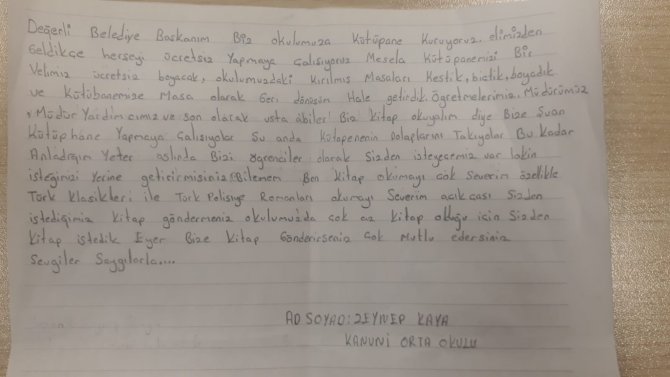 Değerli Belediye Başkanım Biz okulumuza Kütüpane Kuruyoruz. elimizden
Geldikçe herseyi ücretsiz Yapmaya Çalışıyoruz Mesela Kütüpanemizi Bir
Velimiz ücretsiz boyacak, okulumuzdaki Kırılmış Masaları Kestik, biçtik, boyadık
ve Kütübanemize Masa olarak Geri dönüşüm Hale getirdik. Öğretmelerimiz, Müdürümüz
, Müdür Yardımcımız ve son olarak usta abiler Biz kitap okuyalım diye Bize Şuan
Kütüphane Yapmaya Çalışıyolar Şu anda Kütapenenin Dolaplarını Takıyolar Bu Kadar
Anladığım Yeter aslında Bizi öğrenciler olarak Sizden isteyeceimiz var lakin
isteğimizi Yerine getirirmisiniz Bilemem Ben Kitap okumayı çok Severim özellikle
Türk Klasikleri ile Türk Polisiye Romanları okumayı Severim açıkçası Sizden
istediğimiz Kitap göndermeniz okulumuzda çok az kitap olduğu için Sizden
Kitap istedik Eyer Bize Kitap Gönderirseniz Çok Mutlu edersiniz
Sevgiler Saygılarla....
AD SOYAD: ZEYNEP KAYA
KANUNİ ORTA OKULU